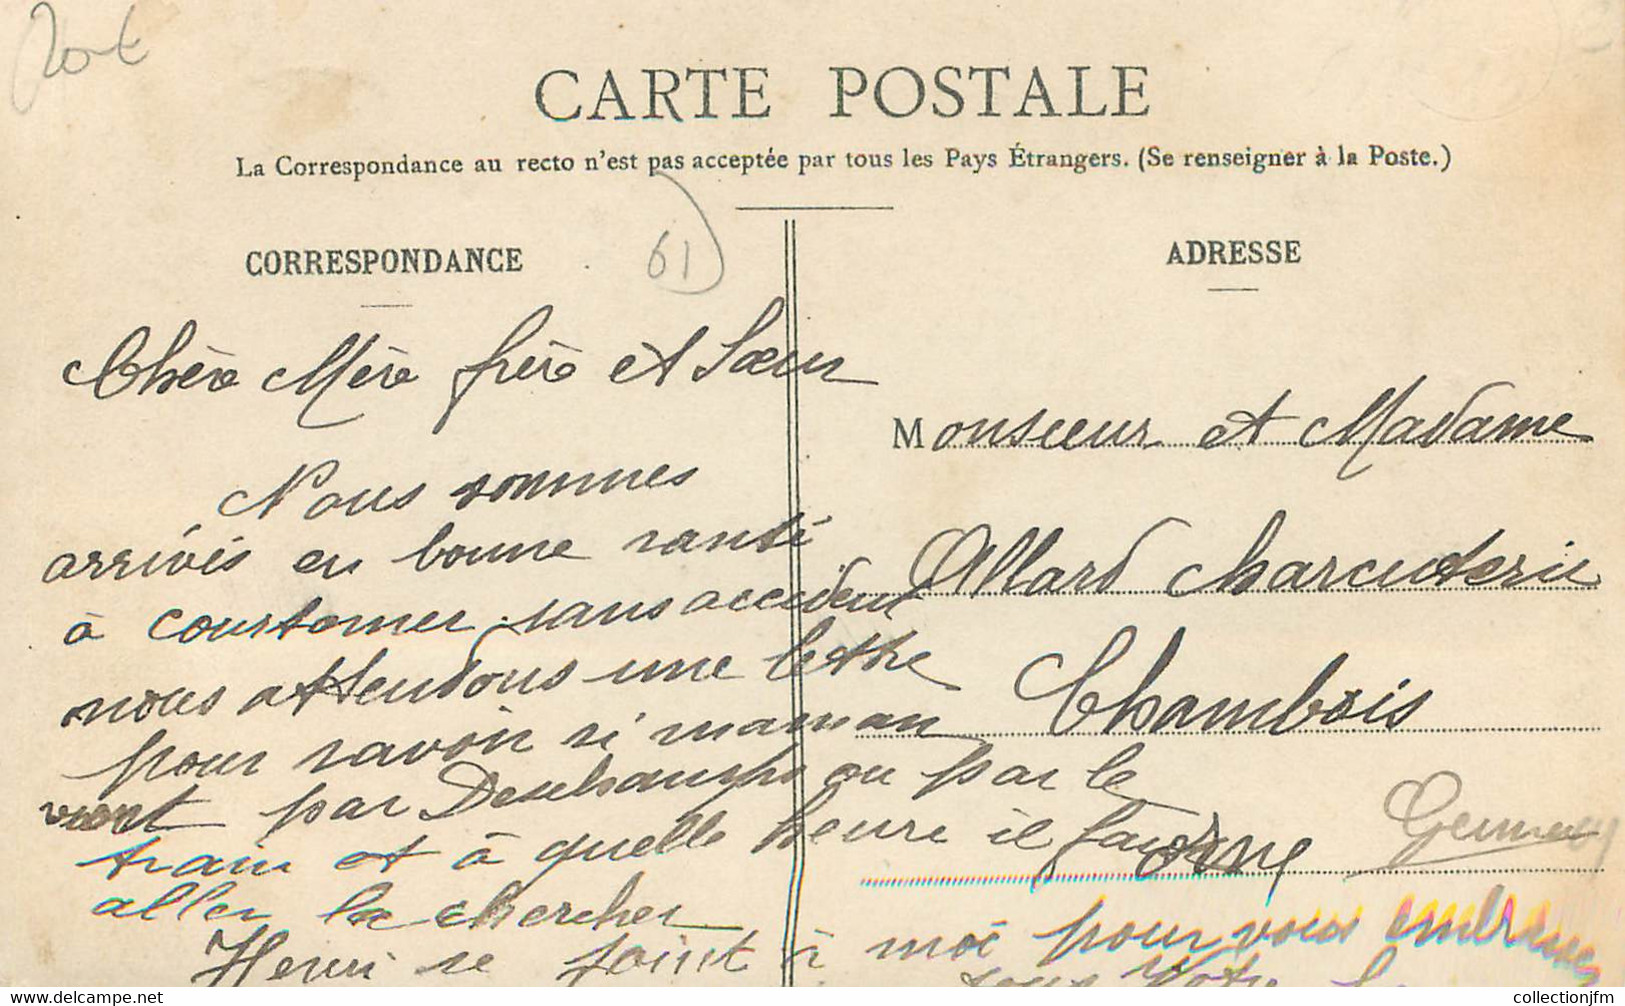 20 €
CARTE POSTALE
La Correspondance au recto n'est pas acceptée par tous les Pays Étrangers. (Se renseigner à la Poste.)
CORRESPONDANCE
61
ADRESSE
Chère Mère frère et Sœur
Nous sommes
arrivés en bonne santé
à courtomer sans accident
nous attendons une lettre
pour savoir si maman
vient par Deschamps ou par le
train et à quelle heure il faut
aller la chercher
Henri se joint à moi pour vous embrasser
tous Votre
Monsieur et Madame
Allard charcuterie
Chambois
Orne
delcampe.net
collectionjfm